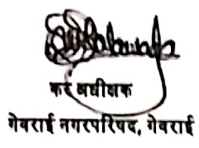 कर अधीक्षक
गेवराई नगरपरिषद, गेवराई